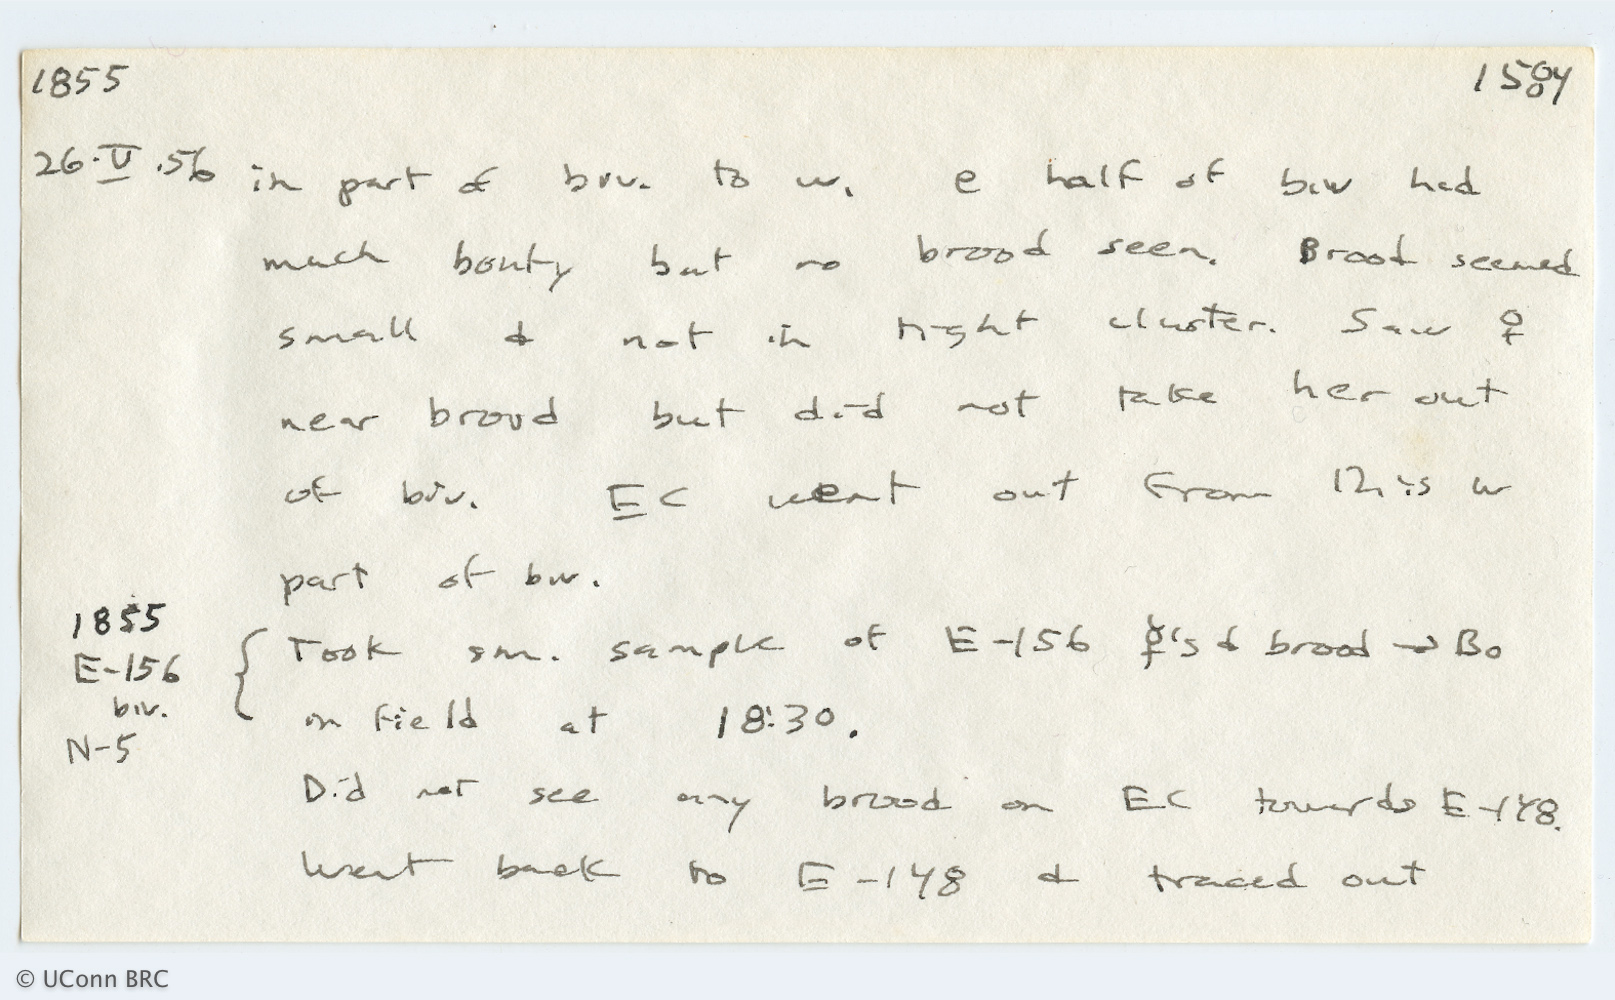 1855 1584
26.V.56 in part of biv. to w. e half of biv had
much booty but no brood seen. Brood seemed
small & not in tight cluster. Saw ♀
near brood but did not take her out
of biv. EC went out from this w
part of biv.
1855
E-156
biv.
N-5
Took sm. sample of E-156 ☿'s & brood → Bo
in field at 18:30.
Did not see any brood on EC towards E-148.
Went back to E-148 & traced out
© UConn BRC